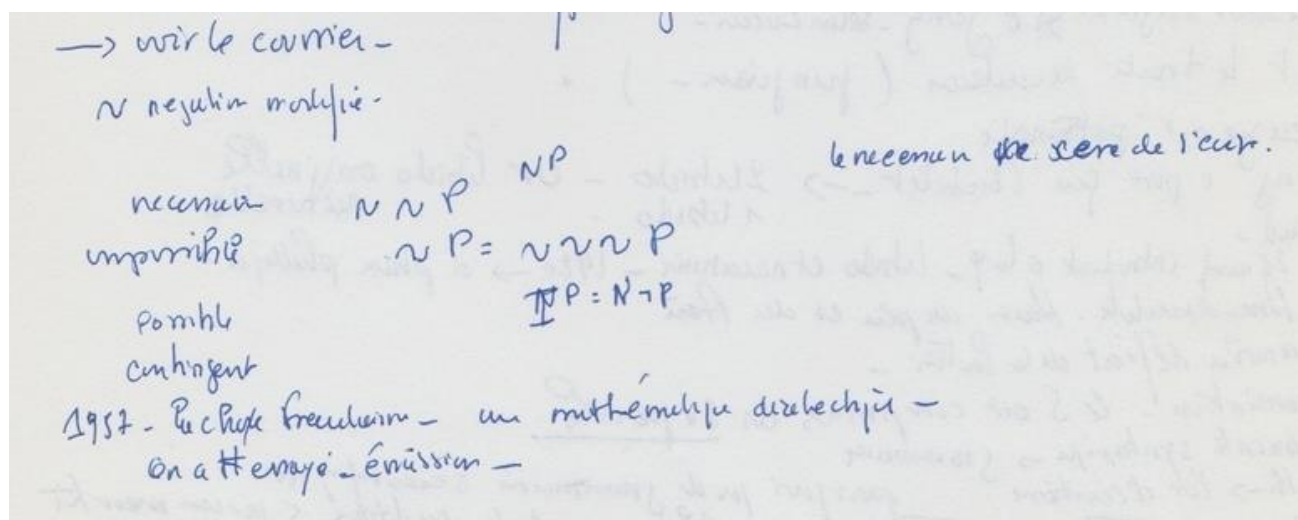 → voir le courrier -
~ negation modifié -
NP
le necessaire de l'écrit.
necessaire ~ ~ P
impossible ~ P = ~ ~ ~ P
IP = N ¬ P
possible
contingent
1957 - La chose freudienne - un dialectique -
on a essayé - émission -